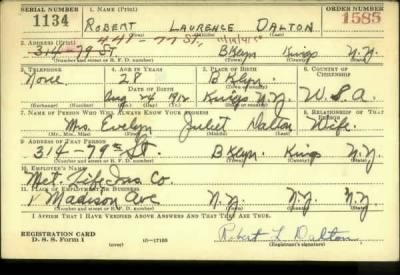 SERIAL NUMBER 1. NAME (Print) ORDER NUMBER
1134 ROBERT LAURENCE DALTON 1585
448-77 St,
2. ADDRESS (Print)
314-79 ST BKlyn Kings N.Y.
3. TELEPHONE 4. AGE IN YEARS 5. PLACE OF BIRTH 6. COUNTRY OF CITIZENSHIP
None 28 BKlyn.
DATE OF BIRTH
Aug Kings N.Y. U.S.A
(Exchange) (Number) (Mo.) (Day) (Yr.) (Town or county) (State or country)
7. NAME OF PERSON WHO WILL ALWAYS KNOW YOUR ADDRESS 8. RELATIONSHIP OF THAT PERSON
Mrs. Evelyn Juliet Dalton Wife.
(Mr., Mrs., Miss) (First) (Middle) (Last)
9. ADDRESS OF THAT PERSON
314-79th St. BKlyn. Kings N.Y.
(Number and street or R. F. D. number) (Town) (County) (State)
10. EMPLOYER'S NAME
Met. Life Ins. Co.
11. PLACE OF EMPLOYMENT OR BUSINESS
1 Madison Ave N.Y. N.Y. N.Y.
(Number and street or R. F. D. number) (Town) (County) (State)
I AFFIRM THAT I HAVE VERIFIED ABOVE ANSWERS AND THAT THEY ARE TRUE.
REGISTRATION CARD
D. S. S. Form 1 (over) 16-17105 Robert L Dalton
(Registrant's signature)